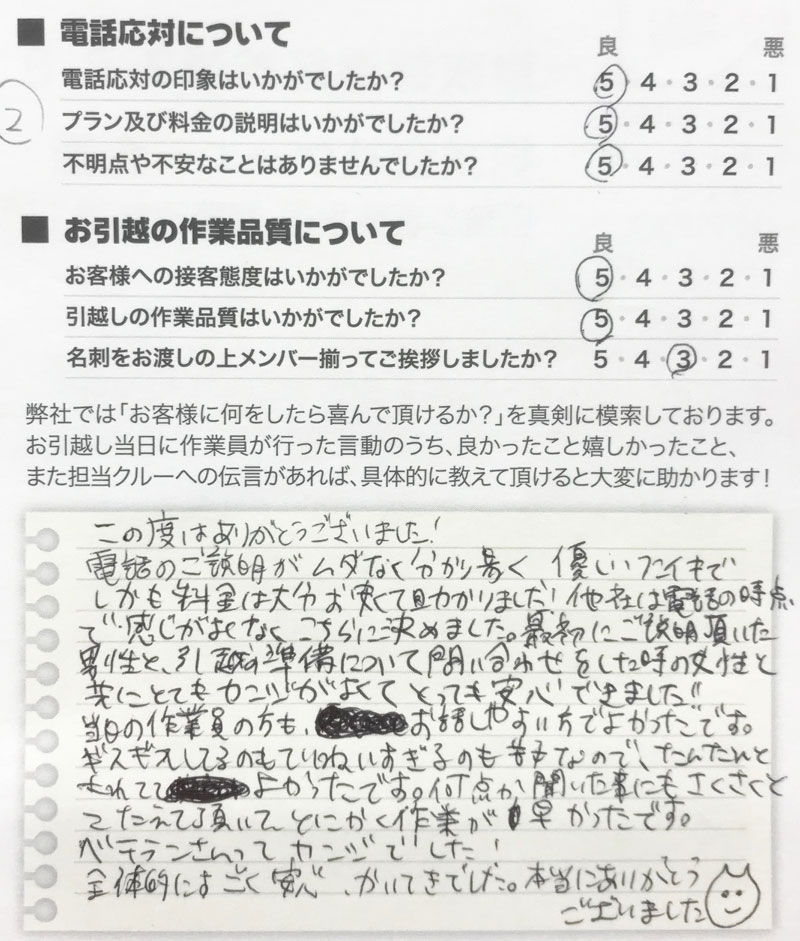 ■ 電話応対について
良 悪
電話応対の印象はいかがでしたか? 5・4・3・2・1
2
プラン及び料金の説明はいかがでしたか? 5・4・3・2・1
不明点や不安なことはありませんでしたか? 5・4・3・2・1
■ お引越の作業品質について
良 悪
お客様への接客態度はいかがでしたか? 5・4・3・2・1
引越しの作業品質はいかがでしたか? 5・4・3・2・1
名刺をお渡しの上メンバー揃ってご挨拶しましたか? 5・4・3・2・1
弊社では「お客様に何をしたら喜んで頂けるか?」を真剣に模索しております。
お引越し当日に作業員が行った言動のうち、良かったこと嬉しかったこと、
また担当クルーへの伝言があれば、具体的に教えて頂けると大変に助かります!
この度はありがとうございました!
電話のご説明がムダなく分かり易く 優しいフンイキで
しかも料金は大分お安くて助かりました!他社は電話の時点
で感じがよくなく こちらに決めました。最初にご説明頂いた
男性と、引越の準備について問い合わせをした時の女性と
共にとてもカンジがよくて とっても安心できました!!
当日の作業員の方も、 お話しやすい方でよかったです。
ギスギスしてるのもていねいすぎるのも苦手なので、たんたんと
されてて よかったです。何点か聞いた事にもさくさくと
こたえて頂いて、とにかく作業が早かったです。
ベテランさんって カンジでした!
全体的にすごく安心、かいてきでした。本当にありがとう
ございました